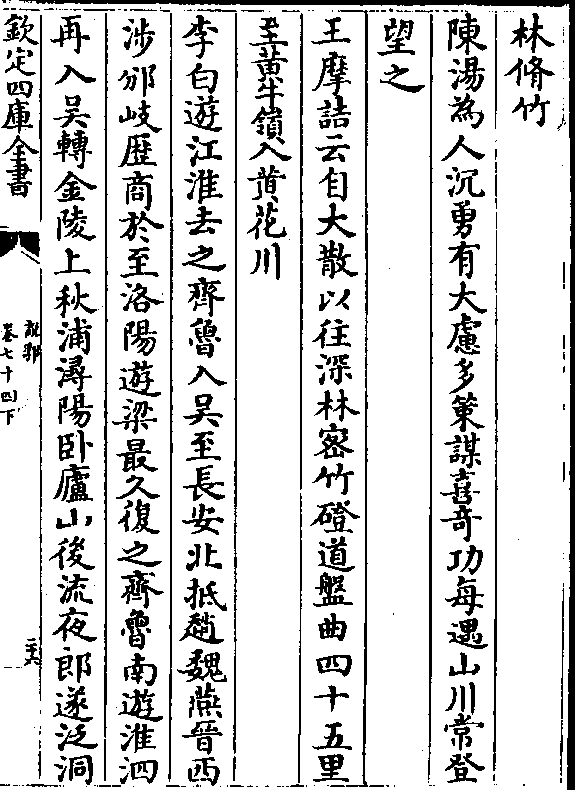 林脩竹
陳湯為人沉勇有大慮多策謀喜竒功每遇山川常登
望之
王摩詰云自大散以往深林宻竹磴道盤曲四十五里
至黄牛嶺入黄花川
李白遊江淮去之齊魯入吴至長安北抵趙魏燕晉西
涉邠岐歴商於至洛陽遊梁最久復之齊魯南遊淮泗
再入吴轉金陵上秋浦潯陽卧廬山後流夜郎遂泛洞
欽定四庫全書
說郛
卷七十四下
二六